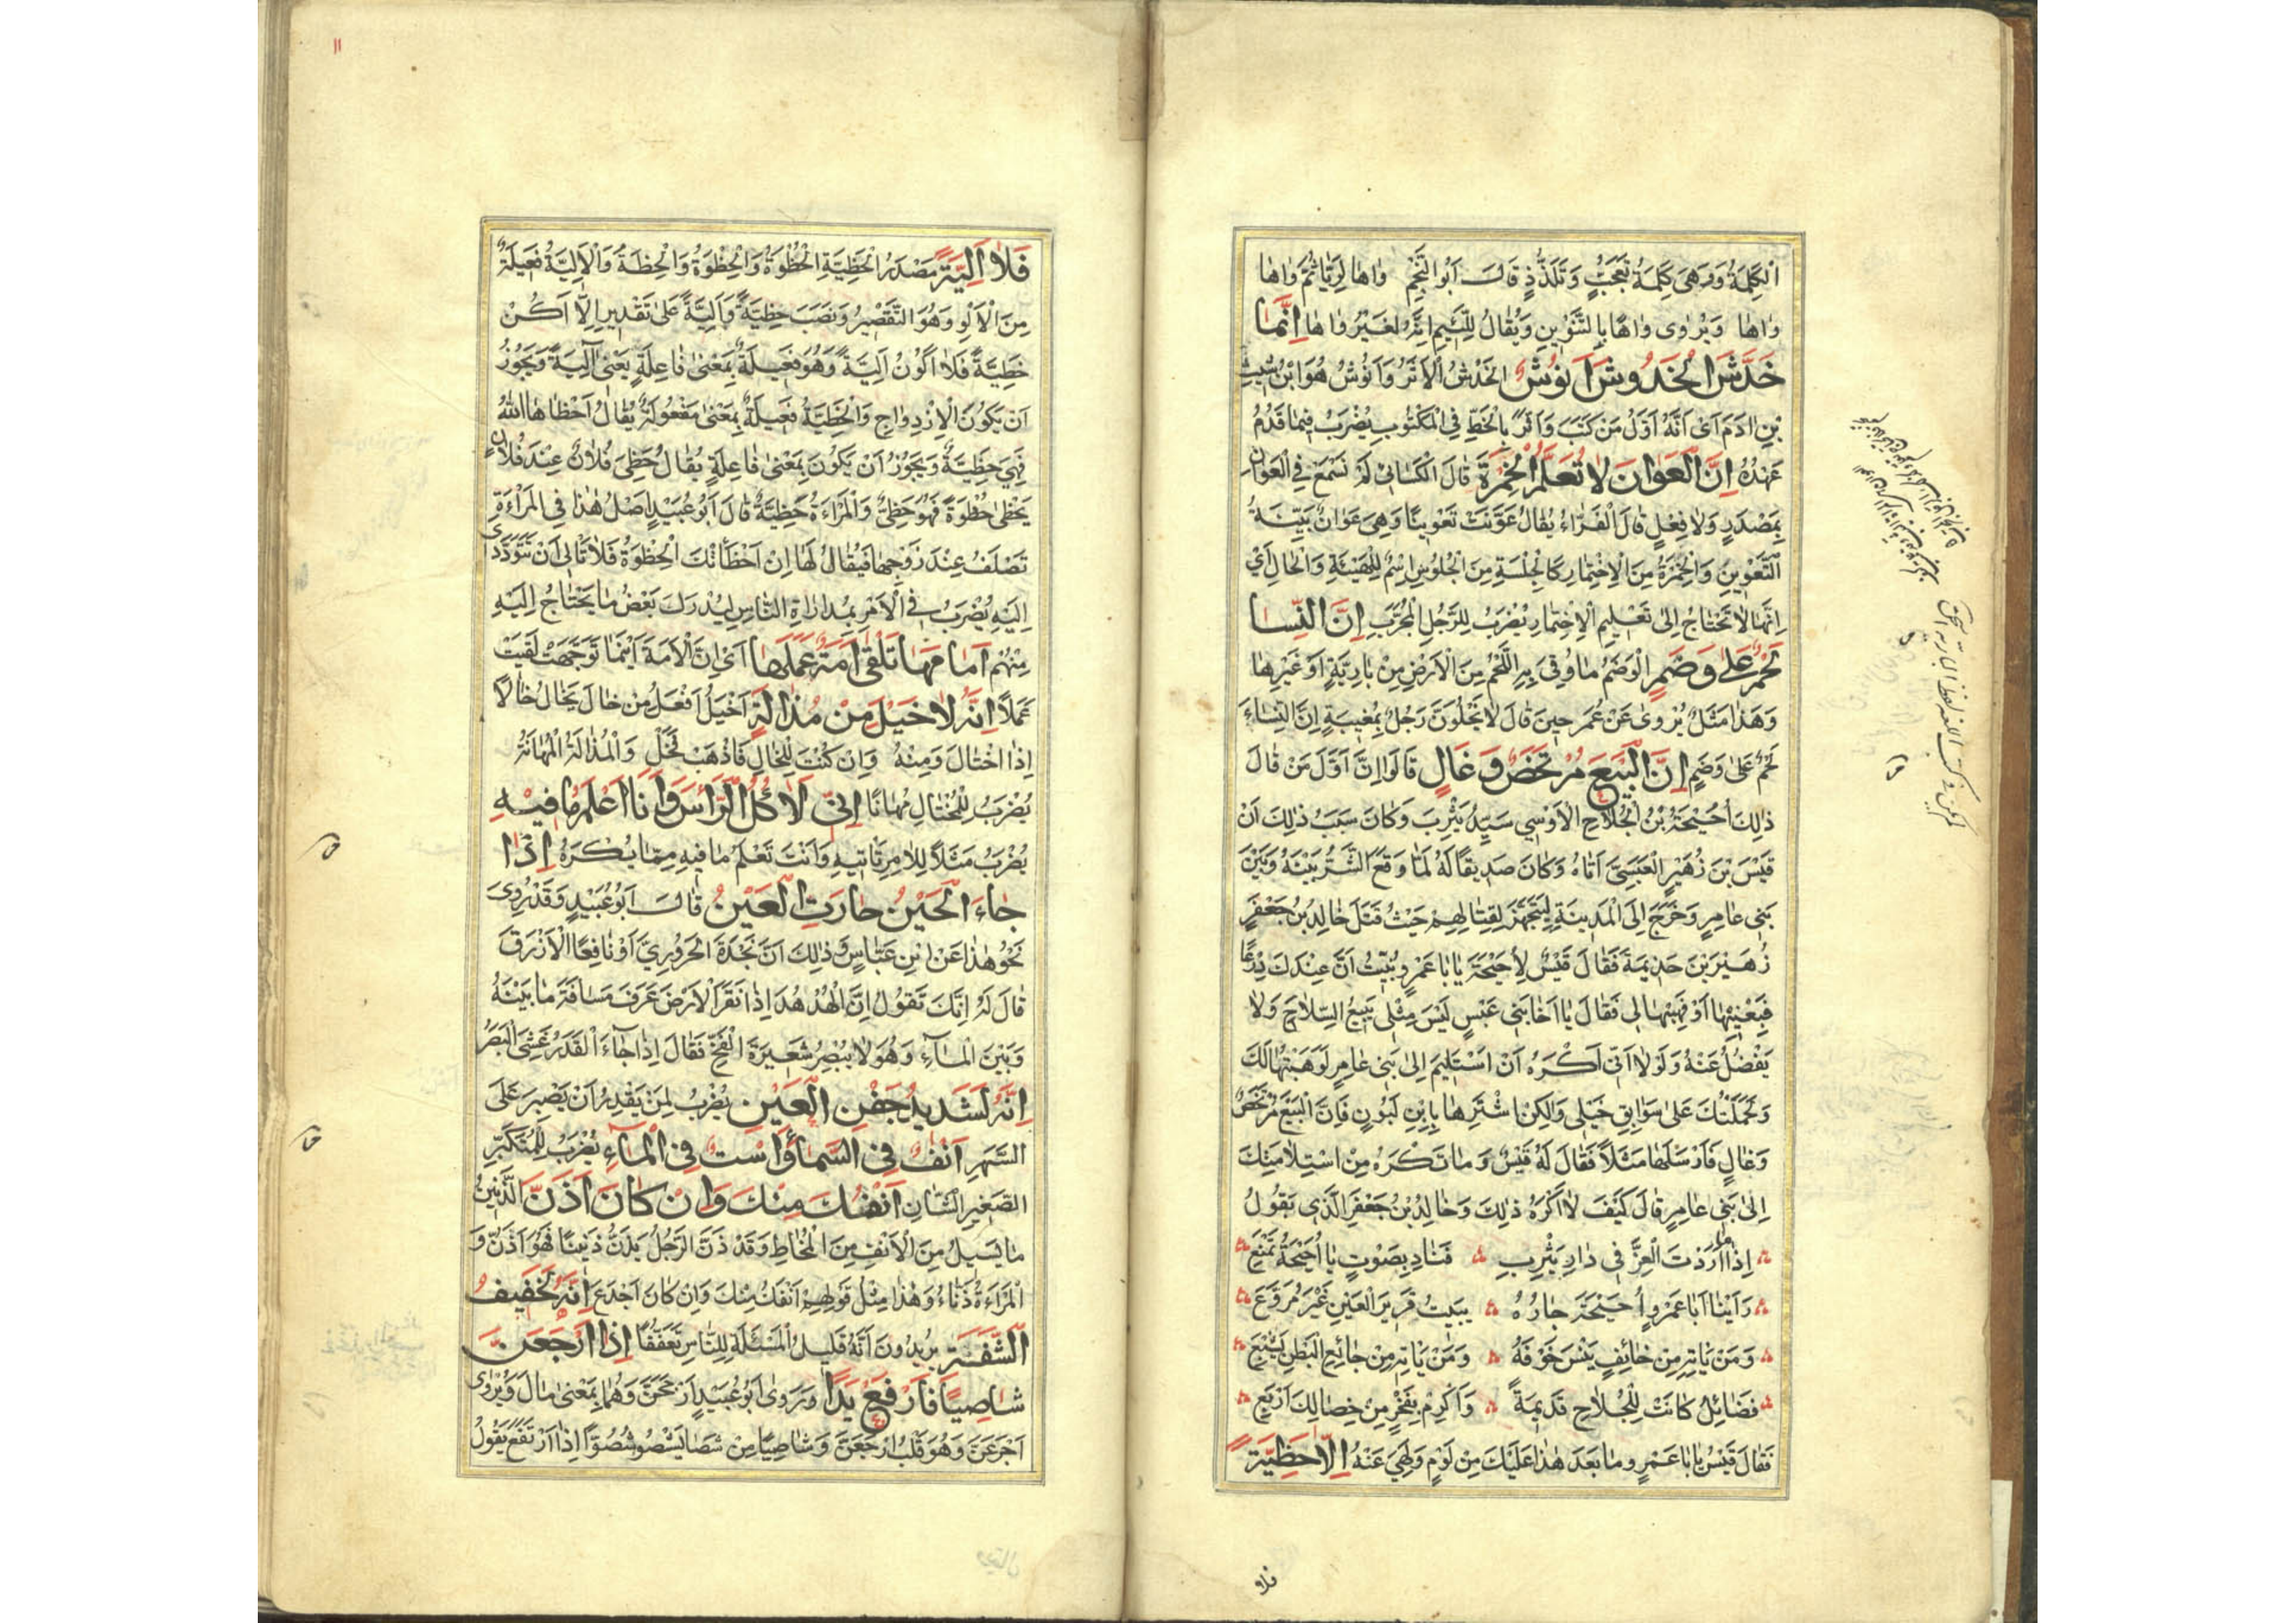 الْكَلِمَةُ وَهِيَ كَلِمَةُ تَعَجُّبٍ وَتَلَذُّذٍ قَالَ اَبُو النَّجْمِ وَاهَا لِرَيَّا ثُمَّ وَاهَا
وَاهَا وَيُرْوَى وَاهًا بِالتَّنْوِينِ وَيُقَالُ لِلَّئِيمِ اِنَّهُ لَغَيْرُ وَاهَا اِنَّمَا
خَدَّشَ الْخُدُوشَ اَنُوشُ الْخَدْشُ الْاَثَرُ وَاَنُوشُ هُوَ ابْنُ شِيثِ
بْنِ اٰدَمَ اَىْ اَنَّهُ اَوَّلُ مَنْ كَتَبَ وَاَثَّرَ بِالْخَطِّ فِي الْمَكْتُوبِ يُضْرَبُ فِيمَا قَدُمَ
عَهْدُهُ اِنَّ الْعَوَانَ لَا تُعَلَّمُ الْخِمْرَةَ قَالَ الْكِسَائِيُّ لَمْ نَسْمَعْ فِي الْعَوَانِ
بِمَصْدَرٍ وَلَا فِعْلٍ قَالَ الْفَرَّاءُ يُقَالُ عَوَّنَتْ تَعْوِينًا وَهِيَ عَوَانٌ بَيِّنَةُ
التَّعْوِينِ وَالْخِمْرَةُ مِنَ الْاِخْتِمَارِ كَالْجِلْسَةِ مِنَ الْجُلُوسِ اِسْمٌ لِلْهَيْئَةِ وَالْحَالِ اَيْ
اِنَّهَا لَا تَحْتَاجُ اِلَى تَعْلِيمِ الْاِخْتِمَارِ يُضْرَبُ لِلرَّجُلِ الْمُجَرَّبِ اِنَّ النِّسَا
لَحْمٌ عَلَى وَضَمٍ الْوَضَمُ مَا وُقِيَ بِهِ اللَّحْمُ مِنَ الْاَرْضِ مِنْ بَارِيَّةٍ اَوْ غَيْرِهَا
وَهَذَا مَثَلٌ يُرْوَى عَنْ عُمَرَ حِينَ قَالَ لَا يَخْلُوَنَّ رَجُلٌ بِمُغِيبَةٍ اِنَّ النِّسَاءَ
لَحْمٌ عَلَى وَضَمٍ اِنَّ الْبَيْعَ مُرْتَخَصٌ وَغَالٍ قَالُوا اِنَّ اَوَّلَ مَنْ قَالَ
ذٰلِكَ اُحَيْحَةُ بْنُ الْجُلَاحِ الْاَوْسِي سَيِّدُ يَثْرِبَ وَكَانَ سَبَبُ ذٰلِكَ اَنَّ
قَيْسَ بْنَ زُهَيْرٍ الْعَبْسِيَّ اَتَاهُ وَكَانَ صَدِيقًا لَهُ لَمَّا وَقَعَ الشَّرُّ بَيْنَهُ وَبَيْنَ
بَنِي عَامِرٍ وَخَرَجَ اِلَى الْمَدِينَةِ لِيَتَجَهَّزَ لِقِتَالِهِمْ حَيْثُ قَتَلَ خَالِدُ بْنُ جَعْفَرٍ
زُهَيْرَ بْنَ جَذِيمَةَ فَقَالَ قَيْسٌ لِاُحَيْحَةَ يَا بَا عَمْرٍو نُبِّئْتُ اَنَّ عِنْدَكَ دِرْعًا
فَبِعْنِيهَا اَوْ فَهَبْهَا لِي فَقَالَ يَا اَخَا بَنِي عَبْسٍ لَيْسَ مِثْلِي يَبِيعُ السِّلَاحَ وَلَا
يَفْضُلُ عَنْهُ وَلَوْلَا اَنِّي اَكْرَهُ اَنْ اَسْتَلِيمَ اِلَى بَنِي عَامِرٍ لَوَهَبْتُهَا لَكَ
وَلَحَمَلْتُكَ عَلَى سَوَابِقِ خَيْلِي وَلَكِنِ اشْتَرِهَا بِابْنِ لَبُونٍ فَاِنَّ الْبَيْعَ مُرْتَخَصٌ
وَغَالٍ فَاَرْسَلَهَا مَثَلًا فَقَالَ لَهُ قَيْسٌ وَمَا تَكْرَهُ مِنْ اسْتِلَامَتِكَ
اِلَى بَنِي عَامِرٍ قَالَ كَيْفَ لَا اَكْرَهُ ذٰلِكَ وَخَالِدُ بْنُ جَعْفَرٍ الَّذِي يَقُولُ
اِذَا مَا اَرَدْتَ الْعِزَّ فِي دَارِ يَثْرِبِ فَنَادِ بِصَوْتٍ يَا اُحَيْحَةُ تُمْنَعِ
رَاَيْنَا اَبَا عَمْرٍو اُحَيْحَةَ جَارُهُ يَبِيتُ قَرِيرَ الْعَيْنِ غَيْرَ مُرَوَّعِ
وَمَنْ يَاْتِهِ مِنْ خَائِفٍ يَنْسَ خَوْفَهُ وَمَنْ يَاْتِهِ مِنْ جَائِعِ الْبَطْنِ يَشْبَعِ
فَضَائِلُ كَانَتْ لِلْجُلَاحِ قَدِيمَةً وَاَكْرِمْ بِفَخْرٍ مِنْ خِصَالِكَ اَرْبَعِ
فَقَالَ قَيْسٌ يَا بَا عَمْرٍو مَا بَعْدَ هٰذَا عَلَيْكَ مِنْ لَوْمٍ وَلَهِيَ عَنْهُ اِلَّا حَظِيَّةً
فلا
١١
فَلَا اَلِيَّةً مَصْدَرُ الْحَظِيَّةِ الْحُظْوَةُ وَالْحِظْوَةُ وَالْحِظَةُ وَالْاَلِيَّةُ فَعِيلَةٌ
مِنَ الْاَلْوِ وَهُوَ التَّقْصِيرُ وَنَصَبَ حَظِيَّةً وَاَلِيَّةً عَلَى تَقْدِيرِ اِلَّا اَكُنْ
حَظِيَّةً فَلَا اَكُونُ اَلِيَّةً وَهُوَ فَعِيلَةٌ بِمَعْنَى فَاعِلَةٍ يَعْنِي اٰلِيَةً وَيَجُوزُ
اَنْ يَكُونَ الْاِزْدِوَاجِ وَالْحَظِيَّةُ فَعِيلَةٌ بِمَعْنَى مَفْعُولَةٍ يُقَالُ اَحْظَاهَا اللّٰهُ
فَهِيَ حَظِيَّةٌ وَيَجُوزُ اَنْ يَكُونَ بِمَعْنَى فَاعِلَةٍ يُقَالُ حَظِيَ فُلَانٌ عِنْدَ فُلَانٍ
يَحْظٰى حُظْوَةً فَهُوَ حَظِيٌّ وَالْمَرْاَةُ حَظِيَّةٌ قَالَ اَبُو عُبَيْدٍ اَصْلُ هٰذَا فِي الْمَرْاَةِ
تَصْلَفُ عِنْدَ زَوْجِهَا فَيُقَالُ لَهَا اِنْ اَخْطَاَتْكَ الْحُظْوَةُ فَلَا تَاْلِي اَنْ تَتَوَدَّدِي
اِلَيْهِ يُضْرَبُ فِي الْاَمْرِ بِمُدَارَاةِ النَّاسِ لِيُدْرِكَ بَعْضَ مَا يَحْتَاجُ اِلَيْهِ
مِنْهُمْ اَمَامَهَا تَلْقَى اَمَةٌ عَمَلَهَا اَيْ اِنَّ الْاَمَةَ اَيْنَمَا تَوَجَّهَتْ لَقِيَتْ
عَمَلًا اِنَّهُ لَاَخْيَلُ مِنْ مُذَالَةٍ اَخْيَلُ اَفْعَلُ مِنْ خَالَ يَخَالُ خَالًا
اِذَا اخْتَالَ وَمِنْهُ وَاِنْ كُنْتَ لِلْخَالِ فَاذْهَبْ فَخَلْ وَالْمُذَالَةُ الْمُهَانَةُ
يُضْرَبُ لِلْمُخْتَالِ مُهَانًا اِنِّي لَاٰكُلُ الرَّاْسَ وَاَنَا اَعْلَمُ مَا فِيهِ
يُضْرَبُ مَثَلًا لِلْاَمْرِ تَاْتِيهِ وَاَنْتَ تَعْلَمُ مَا فِيهِ مِمَّا يُكْرَهُ اِذَا
جَاءَ الْحَيْنُ حَارَتِ الْعَيْنُ قَالَ اَبُو عُبَيْدٍ وَقَدْ رُوِيَ
نَحْوُ هٰذَا عَنْ ابْنِ عَبَّاسٍ وَذٰلِكَ اَنَّ نَجْدَةَ الْحَرُورِيَّ اَوْ نَافِعًا الْاَزْرَقَ
قَالَ لَهُ اِنَّكَ تَقُولُ اِنَّ الْهُدْهُدَ اِذَا نَقَرَ الْاَرْضَ عَرَفَ مَسَافَةَ مَا بَيْنَهُ
وَبَيْنَ الْمَاءِ وَهُوَ لَا يُبْصِرُ شَعِيرَةَ الْفَخِّ فَقَالَ اِذَا جَاءَ الْقَدَرُ غَشِيَ الْبَصَرُ
اِنَّهُ لَشَدِيدُ جَفْنِ الْعَيْنِ يُضْرَبُ لِمَنْ يَقْدِرُ اَنْ يَصْبِرَ عَلَى
السَّهَرِ اَنْفٌ فِي السَّمَاءِ وَاسْتٌ فِي الْمَاءِ يُضْرَبُ لِلْمُتَكَبِّرِ
الصَّغِيرِ الشَّانِ اَنْفُكَ مِنْكَ وَاِنْ كَانَ اَذَنَّ الذَّنِينُ
مَا يَسِيلُ مِنَ الْاَنْفِ مِنَ الْمُخَاطِ وَقَدْ ذَنَّ الرَّجُلُ يَذِنُّ ذَنِينًا فَهُوَ اَذَنُّ وَ
الْمَرْاَةُ ذَنَّاءُ وَهٰذَا مِثْلُ قَوْلِهِمْ اَنْفُكَ مِنْكَ وَاِنْ كَانَ اَجْدَعَ اِنَّهُ لَخَفِيفُ
الشَّفَةِ يُرِيدُونَ اَنَّهُ قَلِيلُ الْمَسْئَلَةِ لِلنَّاسِ تَعَفُّفًا اِذَا ارْجَعَنَّ
شَاصِيًا فَارْفَعْ يَدًا وَرَوَى اَبُو عُبَيْدٍ ارْجَحَنَّ وَهُمَا بِمَعْنَى مَالَ وَيُرْوَى
اجْرَعَنَّ وَهُوَ قَلْبُ ارْجَعَنَّ وَشَاصِيًا مِنْ شَصَا يَشْصُو شُصُوًّا اِذَا ارْتَفَعَ يَقُولُ